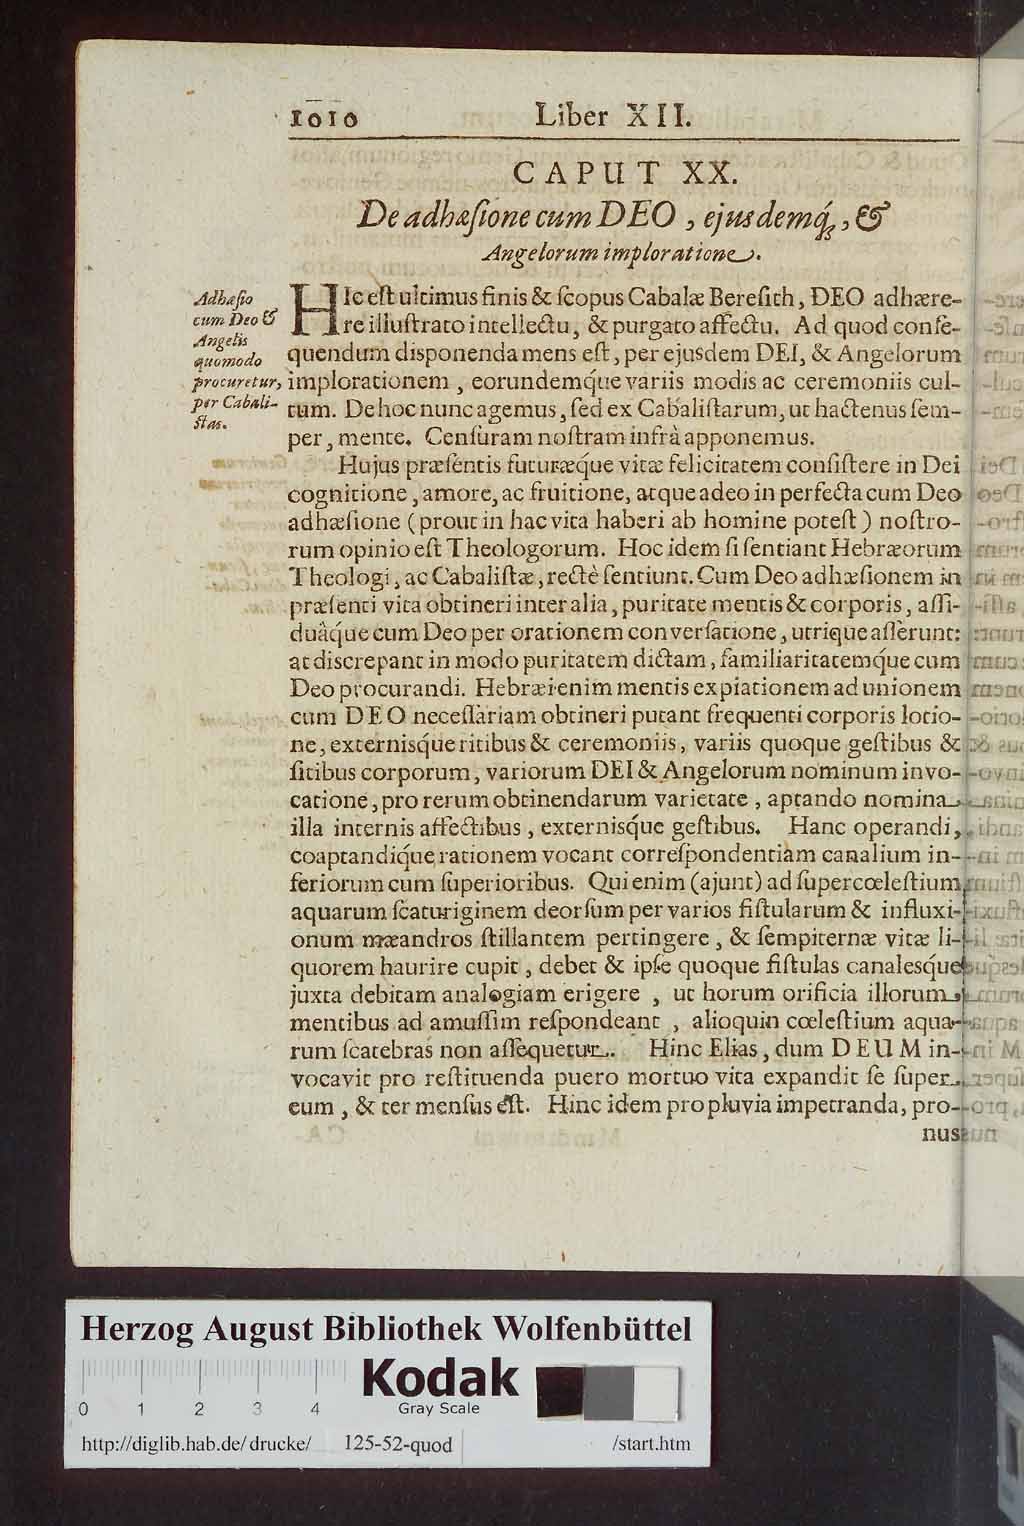 1010 Liber XII.
CAPUT XX.
De adhæſione cum DEO, ejusdemq́;, &
Angelorum imploratione.
Adhæſio
cum Deo &
Angelis
quomodo
procuretur,
per Cabali-
ſtas.
HIc eſt ultimus finis & ſcopus Cabalæ Bereſith, DEO adhære-
re illuſtrato intellectu, & purgato affectu. Ad quod conſe-
quendum disponenda mens eſt, per ejusdem DEI, & Angelorum
implorationem, eorundemq́ue variis modis ac ceremoniis cul-
tum. De hoc nunc agemus, ſed ex Cabaliſtarum, ut hactenus ſem-
per, mente. Cenſuram noſtram infrà apponemus.
Hujus præſentis futuræque vitæ felicitatem conſiſtere in Dei
cognitione, amore, ac fruitione, atque adeo in perfecta cum Deo
adhæſione (prout in hac vita haberi ab homine poteſt) noſtro-
rum opinio eſt Theologorum. Hoc idem ſi ſentiant Hebræorum
Theologi, ac Cabaliſtæ, rectè ſentiunt. Cum Deo adhæſionem in
præſenti vita obtineri inter alia, puritate mentis & corporis, aſſi-
duâque cum Deo per orationem converſatione, utrique aſſerunt:
at discrepant in modo puritatem dictam, familiaritatemq́ue cum
Deo procurandi. Hebræi enim mentis expiationem ad unionem
cum DEO neceſſariam obtineri putant frequenti corporis lotio-
ne, externisq́ue ritibus & ceremoniis, variis quoque geſtibus &
ſitibus corporum, variorum DEI & Angelorum nominum invo-
catione, pro rerum obtinendarum varietate, aptando nomina
illa internis affectibus, externisq́ue geſtibus. Hanc operandi,
coaptandiq́ue rationem vocant correſpondentiam canalium in-
feriorum cum ſuperioribus. Qui enim (ajunt) ad ſupercœleſtium
aquarum ſcaturiginem deorſum per varios fiſtularum & influxi-
onum mæandros ſtillantem pertingere, & ſempiternæ vitæ li-
quorem haurire cupit, debet & ipſe quoque fiſtulas canalesq́ue
juxta debitam analogiam erigere, ut horum orificia illorum
mentibus ad amuſſim reſpondeant, alioquin cœleſtium aqua-
rum ſcatebras non aſſequetur. Hinc Elias, dum DEUM in-
vocavit pro reſtituenda puero mortuo vita expandit ſe ſuper
eum, & ter menſus eſt. Hinc idem pro pluvia impetranda, pro-
nus
Herzog August Bibliothek Wolfenbüttel
Kodak
Gray Scale
0 1 2 3 4
http://diglib.hab.de/drucke/ 125-52-quod /start.htm